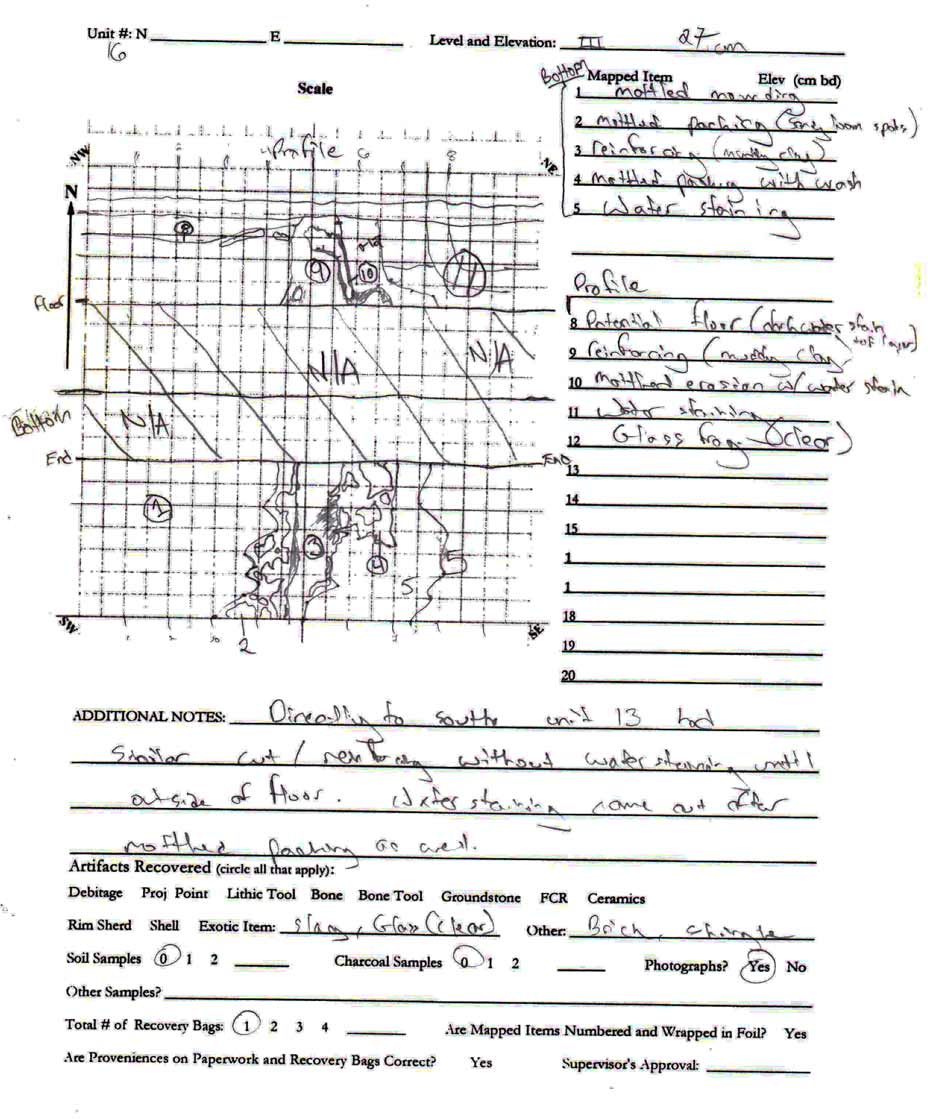 Unit #: N E Level and Elevation: III 27 cm
16
Scale
Bottom Mapped Item Elev (cm bd)
1 mottled mounding
2 mottled packing ( spots)
3 reinforcing (muddy clay)
4 mottled packing with wash
5 Water staining
Profile 6 8
NW NE
N
8
9 10 11
Floor
N/A N/A
Bottom N/A
End End
1 3 4 5 5
SW SE
2
Profile
8 Potential floor (dark water stain
top layer)
9 reinforcing (muddy clay)
10 erosion w/ water stain
11 Water staining
12 Glass frag (clear)
13
14
15
1
1
18
19
20
ADDITIONAL NOTES: Directly to south unit 13 had
similar cut / reinforcing without water staining until
outside of floor. Water staining came out after
mottled packing as well.
Artifacts Recovered (circle all that apply):
Debitage Proj Point Lithic Tool Bone Bone Tool Groundstone FCR Ceramics
Rim Sherd Shell Exotic Item: slag, Glass (clear) Other: Brick, shingle
Soil Samples 0 1 2 Charcoal Samples 0 1 2 Photographs? Yes No
Other Samples?
Total # of Recovery Bags: 1 2 3 4 Are Mapped Items Numbered and Wrapped in Foil? Yes
Are Proveniences on Paperwork and Recovery Bags Correct? Yes Supervisor's Approval: